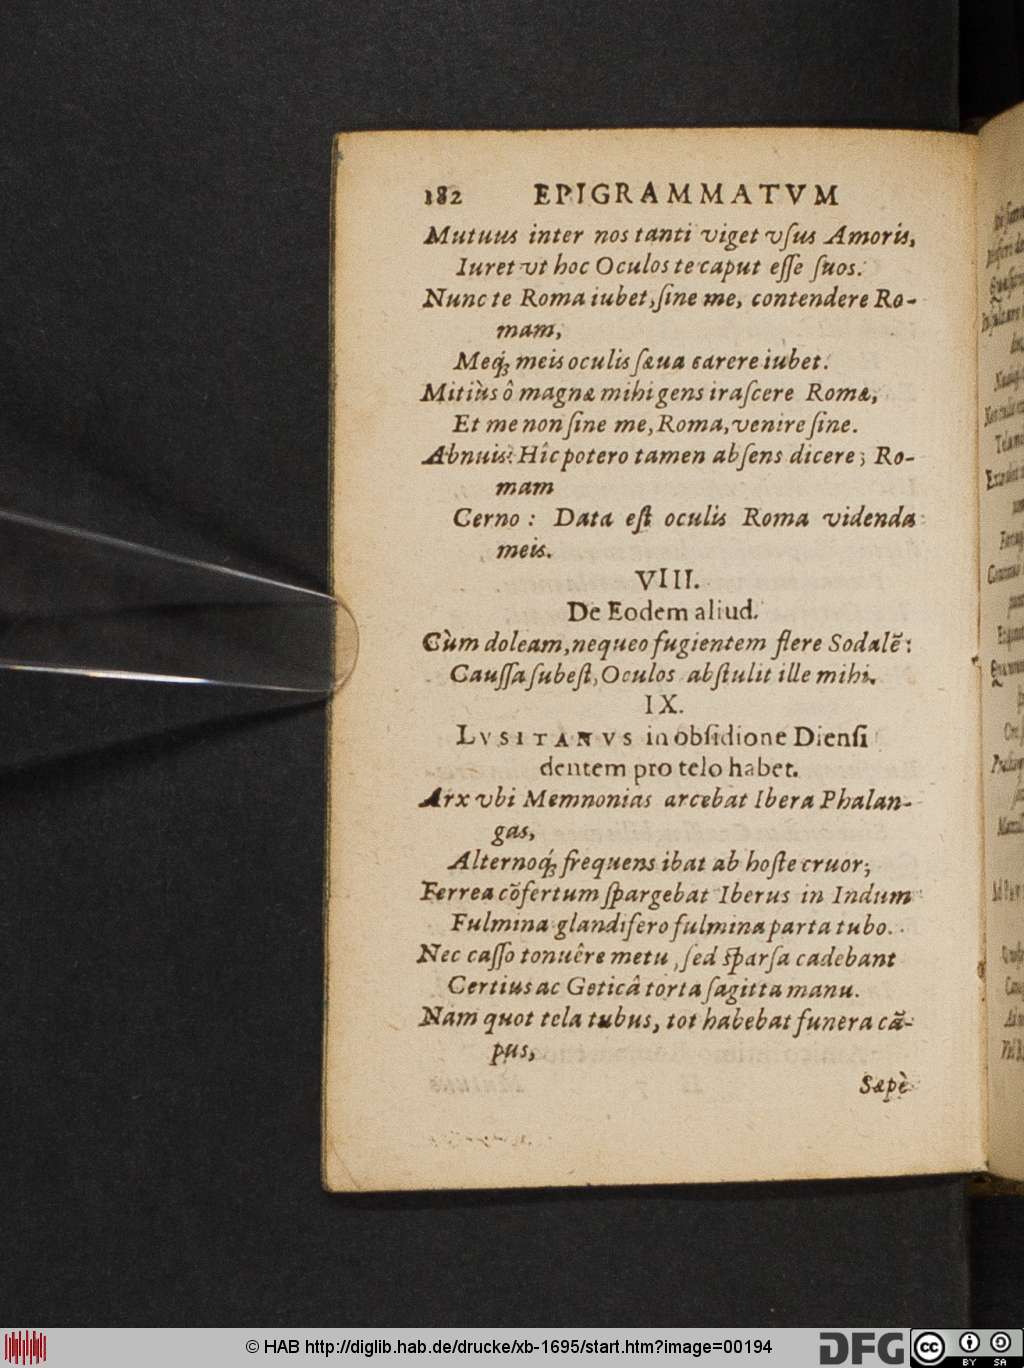 182 EPIGRAMMATVM
Mutuus inter nos tanti viget vſus Amoris,
Iuret vt hoc Oculos te caput eſſe ſuos.
Nunc te Roma iubet, ſine me, contendere Ro-
mam,
Meq́; meis oculis ſæua carere iubet.
Mitiùs ô magnæ mihi gens iraſcere Romæ,
Et me non ſine me, Roma, venire ſine.
Abnuis: Hîc potero tamen abſens dicere; Ro-
mam
Cerno: Data eſt oculis Roma videnda
meis.
VIII.
De Eodem aliud.
Cùm doleam, nequeo fugientem flere Sodalẽ:
Cauſſa ſubeſt, Oculos abſtulit ille mihi.
IX.
LVSITANVS in obſidione Dienſi
dentem pro telo habet.
Arx vbi Memnonias arcebat Ibera Phalan-
gas,
Alternoq́; frequens ibat ab hoſte cruor;
Ferrea cõfertum ſpargebat Iberus in Indum
Fulmina glandifero fulmina parta tubo.
Nec caſſo tonuêre metu, ſed ſparſa cadebant
Certius ac Geticâ torta ſagitta manu.
Nam quot tela tubus, tot habebat funera cã-
pus,
Sæpè
© HAB http://diglib.hab.de/drucke/xb-1695/start.htm?image=00194
DFG
cc
BY SA